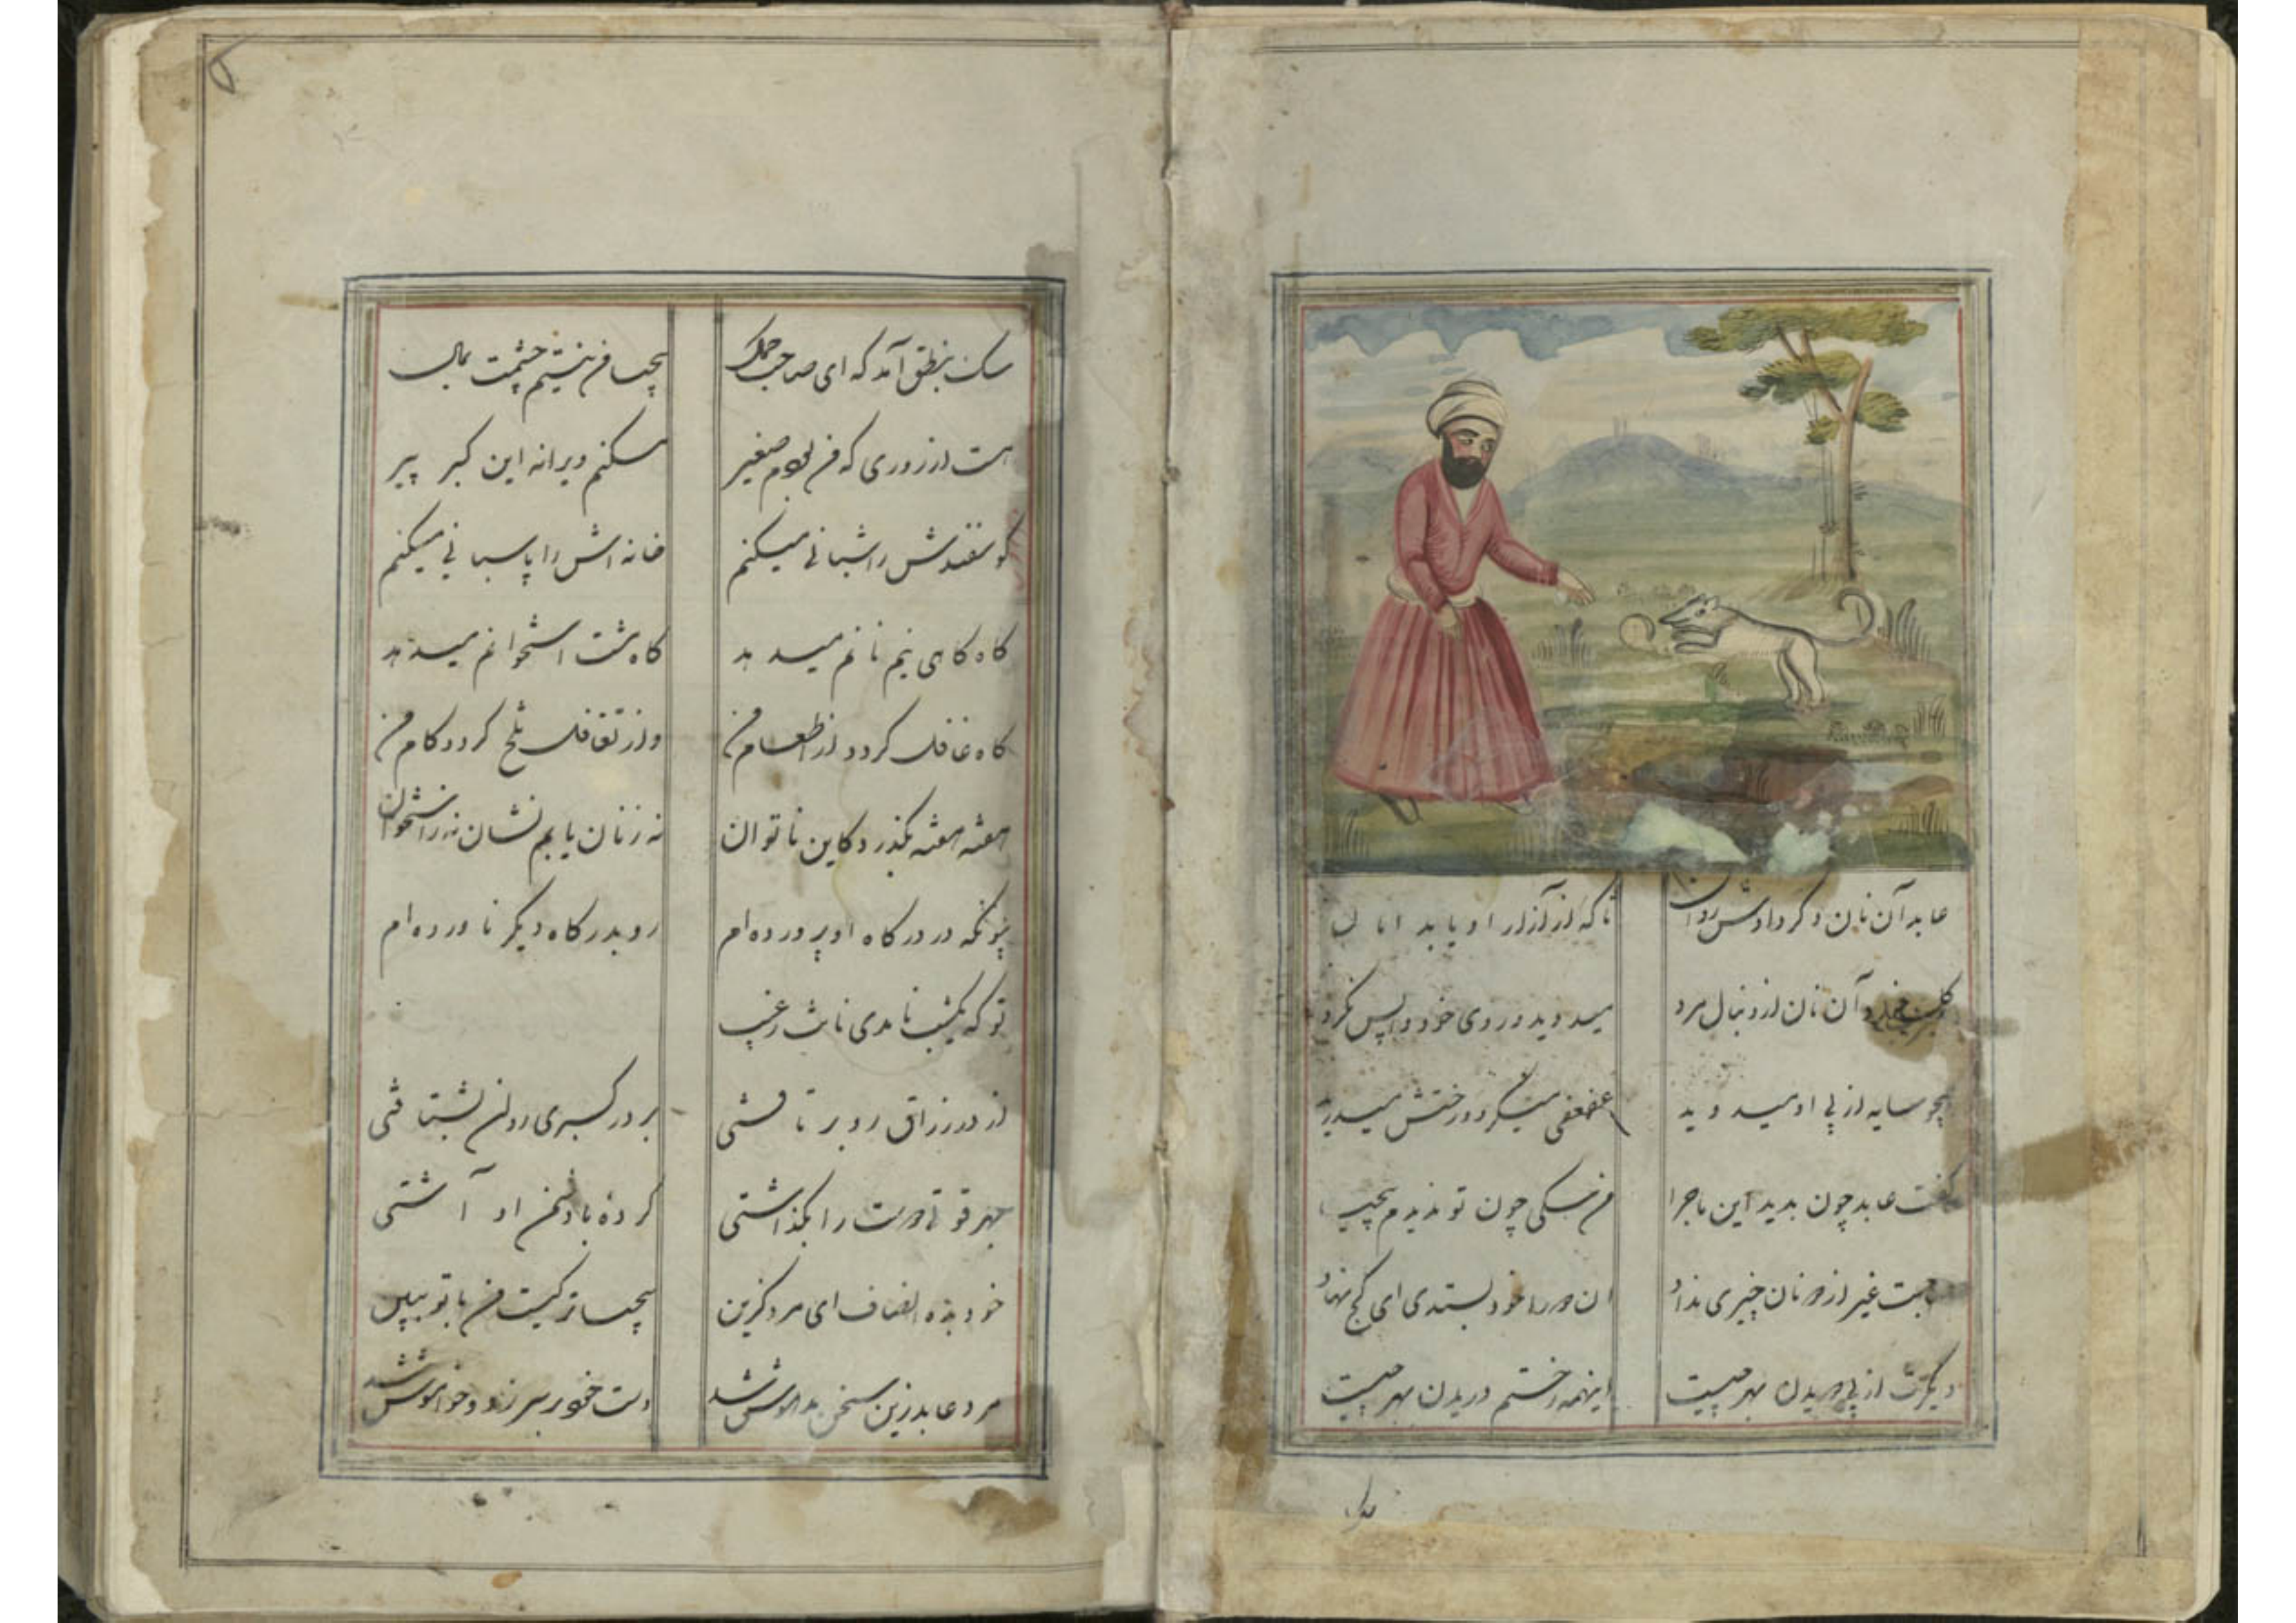 عابد آن نان دگر دادش روان تا که از آزار او یابد امان
کلب خورد آن نان از دنبال مرد میدوید و روی خود واپس نکرد
همچو سایه از پی او میدوید عفعفی میکرد و رختش میدرید
گفت عابد چون بدید این ماجرا من سگی چون تو ندیدم بیحیا
صاحبت غیر از دو نان چیزی نداد وان دو را خود بستدی ای کج نهاد
دیگرت از پی دویدن بهر چیست اینهمه رختم دریدن بهر چیست
سک بنطق آمد که ای صاحب کمال بیحیا من نیستم چشمت بمال
هست از زوری که من بودم صغیر مسکنم ویرانه این کبر پیر
کوسفندش را شبانی میکنم خانه اش را پاسبانی میکنم
کاه کاهی نیم نانم میدهد کاه مشت استخوانم میدهد
کاه غافل کردد از اطعام من وز تغافل تلخ کردد کام من
هفته هفته بکذرد کاین ناتوان نه ز نان یابم نشان نه ز استخوان
چونکه در درکاه او پرورده ام رو بدرکاه دیکر ناورده ام
تو که یکشب نامدی نانت ز غیب
از در رزاق رو برتافتی بر در کبری روان بشتافتی
بهر قوتی دوست را بکذاشتی کرده با دشمن او آشتی
خود بده انصاف ای مرد کزین بیحیاتر کیست من یا تو ببین
مرد عابد زین سخن مدهوش شد دست خود بر سر زد و خواموش شد